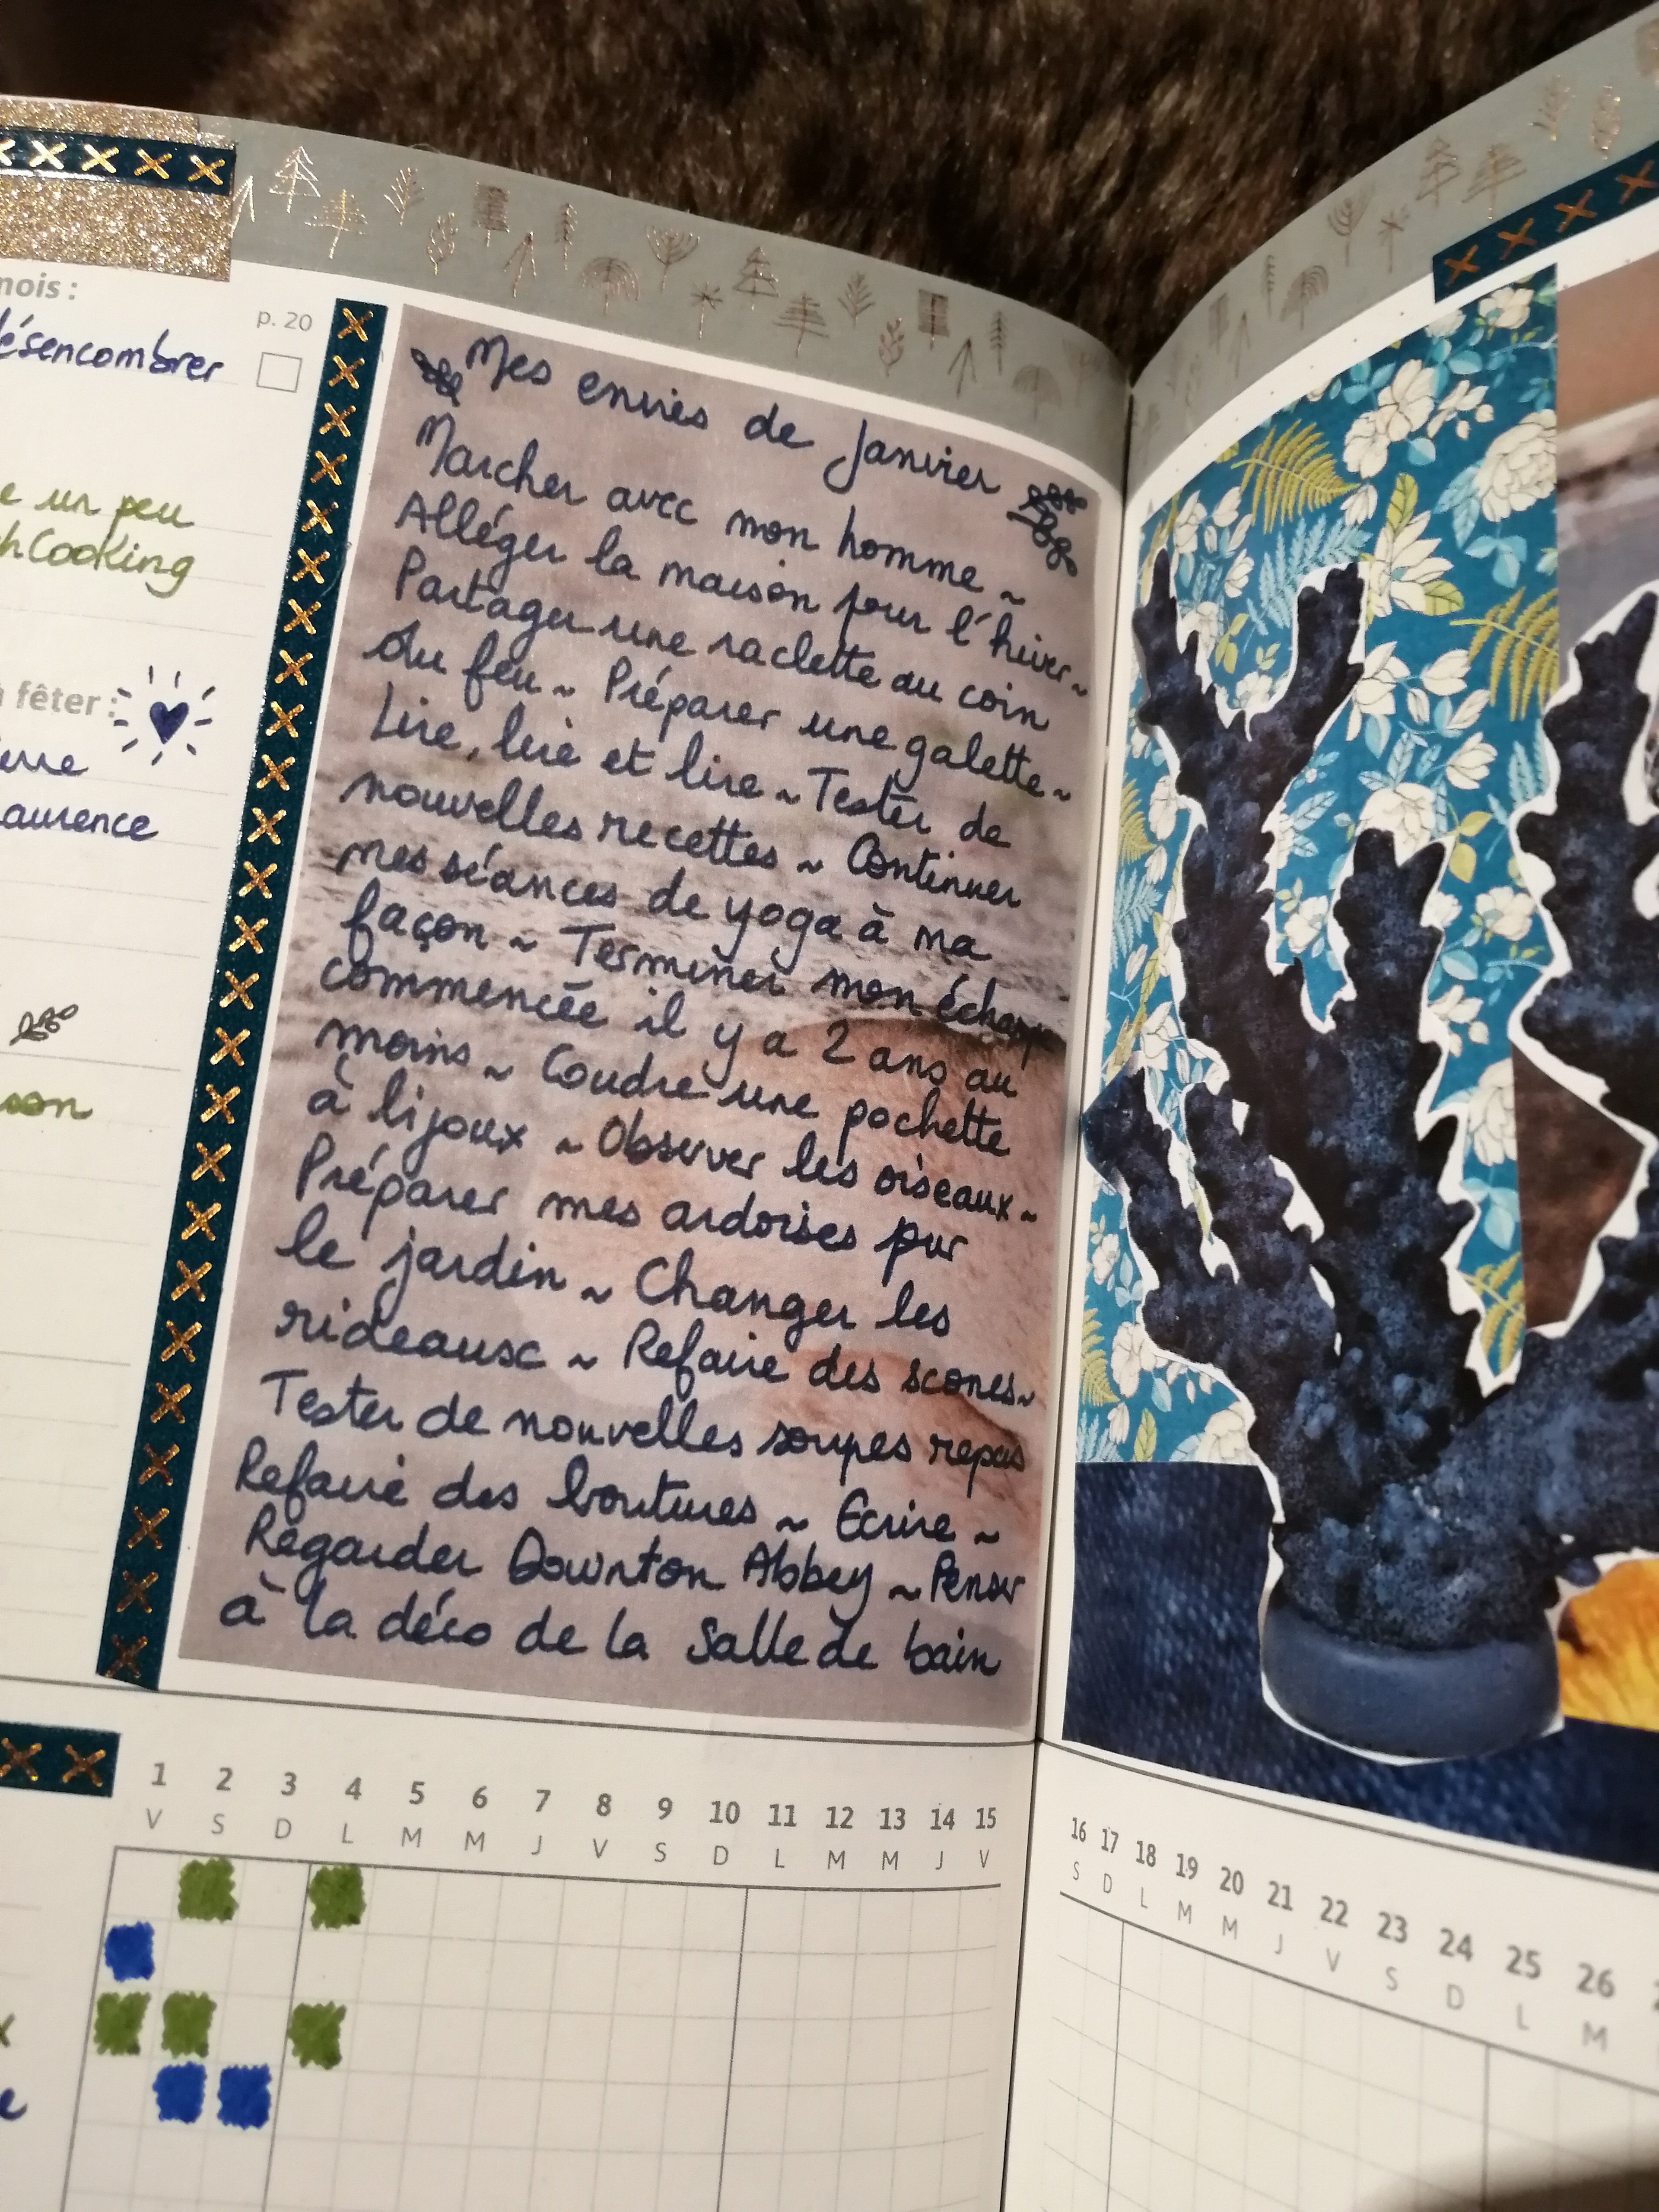 mois :
p. 20
désencombrer
un peu
Cooking
à fêter :
Laurence
Mes envies de janvier
Marcher avec mon homme ~
Alléger la maison pour l'hiver ~
Partager une raclette au coin
du feu ~ Préparer une galette ~
Lire, lire et lire ~ Tester de
nouvelles recettes ~ Continuer
mes séances de yoga à ma
façon ~ Terminer mon écharpe
commencée il y a 2 ans au
moins ~ Coudre une pochette
à bijoux ~ Observer les oiseaux ~
Préparer mes ardoises pour
le jardin ~ Changer les
rideaux ~ Refaire des scones ~
Tester de nouvelles soupes repas
Refaire des boutures ~ Ecrire ~
Regarder Downton Abbey ~ Penser
à la déco de la salle de bain
1 2 3 4 5 6 7 8 9 10 11 12 13 14 15
V S D L M M J V S D L M M J V
16 17 18 19 20 21 22 23 24 25 26
S D L M M J V S D L M